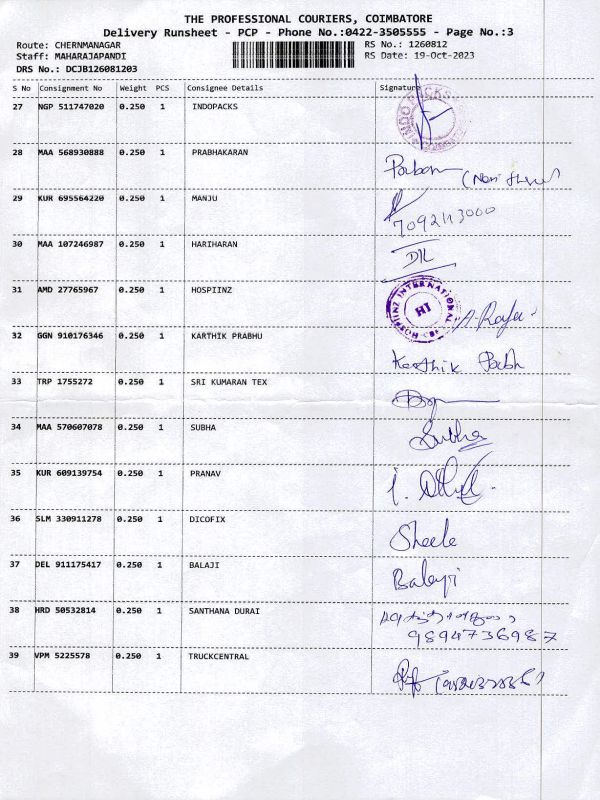 THE PROFESSIONAL COURIERS, COIMBATORE
Delivery Runsheet - PCP - Phone No.:0422-3505555 - Page No.:3
Route: CHERNMANAGAR RS No.: 1260812
Staff: MAHARAJAPANDI RS Date: 19-Oct-2023
DRS No.: DCJB126081203
S No Consignment No Weight PCS Consignee Details Signature
27 NGP 511747020 0.250 1 INDOPACKS
28 MAA 568930888 0.250 1 PRABHAKARAN
29 KUR 695564220 0.250 1 MANJU
30 MAA 107246987 0.250 1 HARIHARAN
31 AMD 27765967 0.250 1 HOSPIINZ HOSPIINZ INTERNATIONAL HI
32 GGN 910176346 0.250 1 KARTHIK PRABHU Karthik
33 TRP 1755272 0.250 1 SRI KUMARAN TEX
34 MAA 570607078 0.250 1 SUBHA Subha
35 KUR 609139754 0.250 1 PRANAV
36 SLM 330911278 0.250 1 DICOFIX Sheela
37 DEL 911175417 0.250 1 BALAJI Balaji
38 HRD 50532814 0.250 1 SANTHANA DURAI
9894736987
39 VPM 5225578 0.250 1 TRUCKCENTRAL